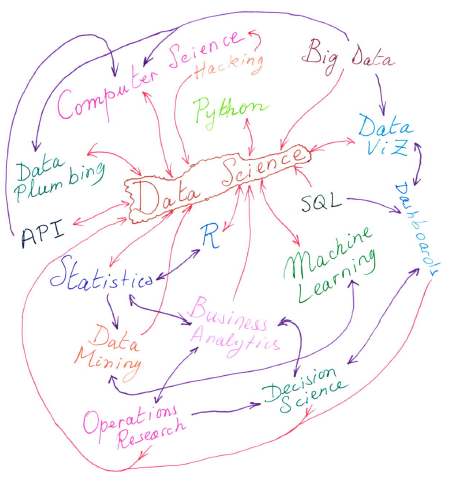 Computer Science
Hacking
Big Data
Python
Data
Viz
Data
Plumbing
Data Science
API
SQL
Dashboards
R
Statistics
Machine
Learning
Business
Analytics
Data
Mining
Decision
Science
Operations
Research